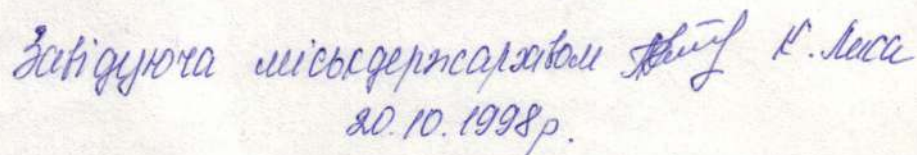 Завідуюча міськдержархівом К. Лиса
20.10.1998р.